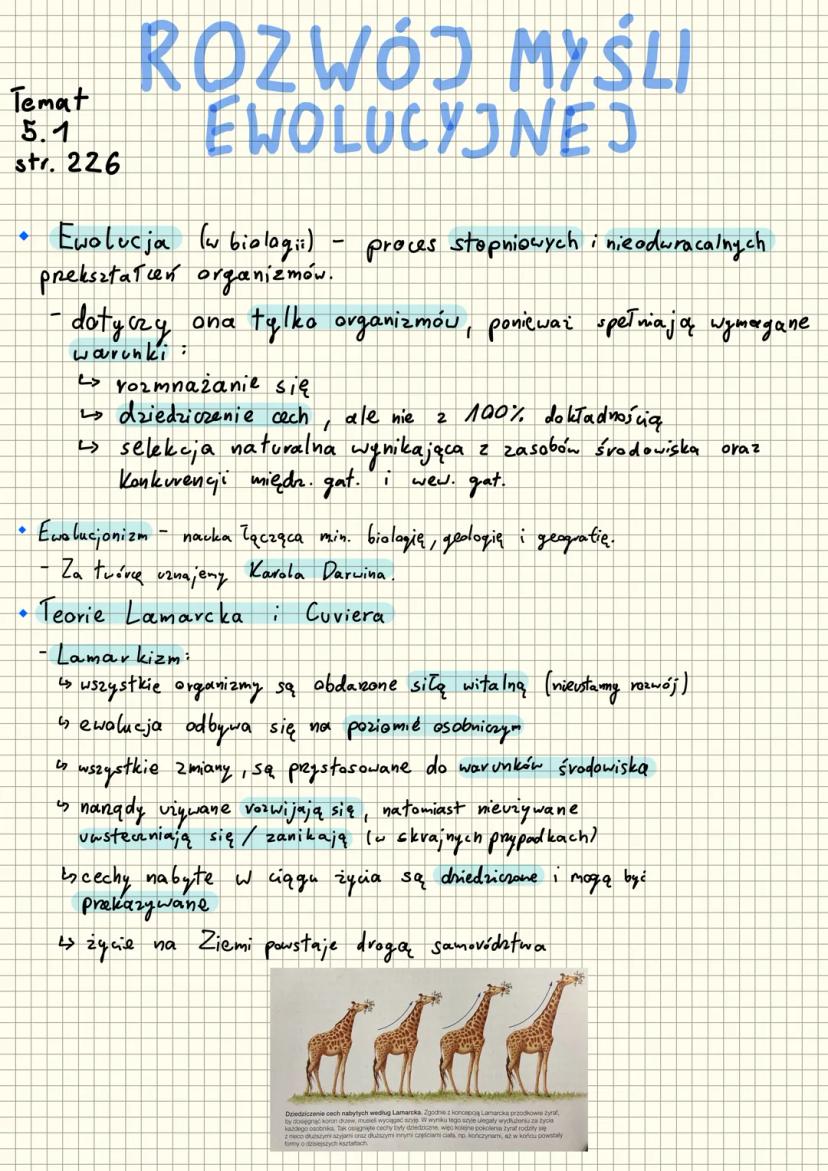 ROZWÓJ MYŚLI
EWOLUCYJNEJ
Temat
5.1
str. 226
• Ewolucja (w biologii) - proces stopniowych i nieodwracalnych
przekształceń organizmów.
- dotyczy ona tylko organizmów, ponieważ spełniają wymagane
warunki:
↳ rozmnażanie się
↳ dziedziczenie cech, ale nie z 100% dokładnością
↳ selekcja naturalna wynikająca z zasobów środowiska oraz
konkurencji międz. gat. i wew. gat.
• Ewolucjonizm - nauka łącząca min. biologię, geologię i geografię.
- Za twórcę uznajemy Karola Darwina.
• Teorie Lamarcka i Cuviera
- Lamarkizm:
↳ wszystkie organizmy są obdarzone siłą witalną (nieustanny rozwój)
↳ ewolucja odbywa się na poziomie osobniczym
↳ wszystkie zmiany, są przystosowane do warunków środowiska
↳ narządy używane rozwijają się, natomiast nieużywane
uwsteczniają się / zanikają (w skrajnych przypadkach)
↳ cechy nabyte w ciągu życia są dziedziczone i mogą być
przekazywane
↳ życie na Ziemi powstaje drogą samorództwa
Dziedziczenie cech nabytych według Lamarcka. Zgodnie z koncepcją Lamarcka przodkowie żyraf,
by dosięgnąć koron drzew, musieli wyciągać szyję. W wyniku tego szyje ulegały wydłużeniu za życia
każdego osobnika. Tak osiągnięte cechy były dziedziczne, więc kolejne pokolenia żyraf rodziły się
z nieco dłuższymi szyjami oraz dłuższymi innymi częściami ciała, np. kończynami, aż w końcu powstały
formy o dzisiejszych kształtach.